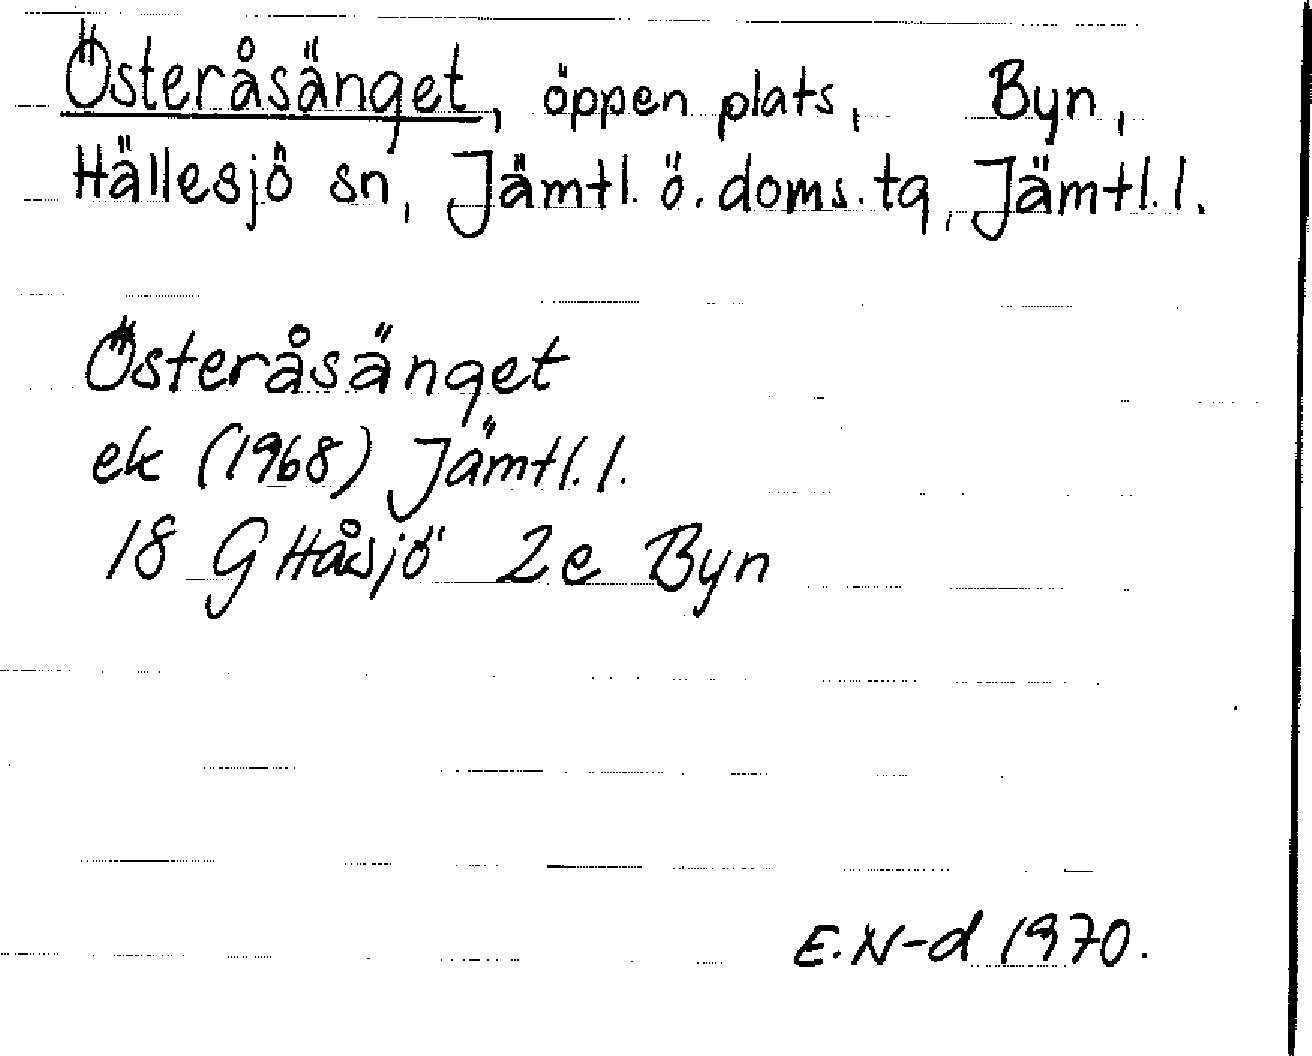 Österåsänget, öppen plats, Byn,
Hällesjö sn, Jämtl. ö. doms. tg, Jämtl. l.
Österåsänget
ek (1968) Jämtl. l.
18 G Håsjö 2e Byn
E.N-d 1970.